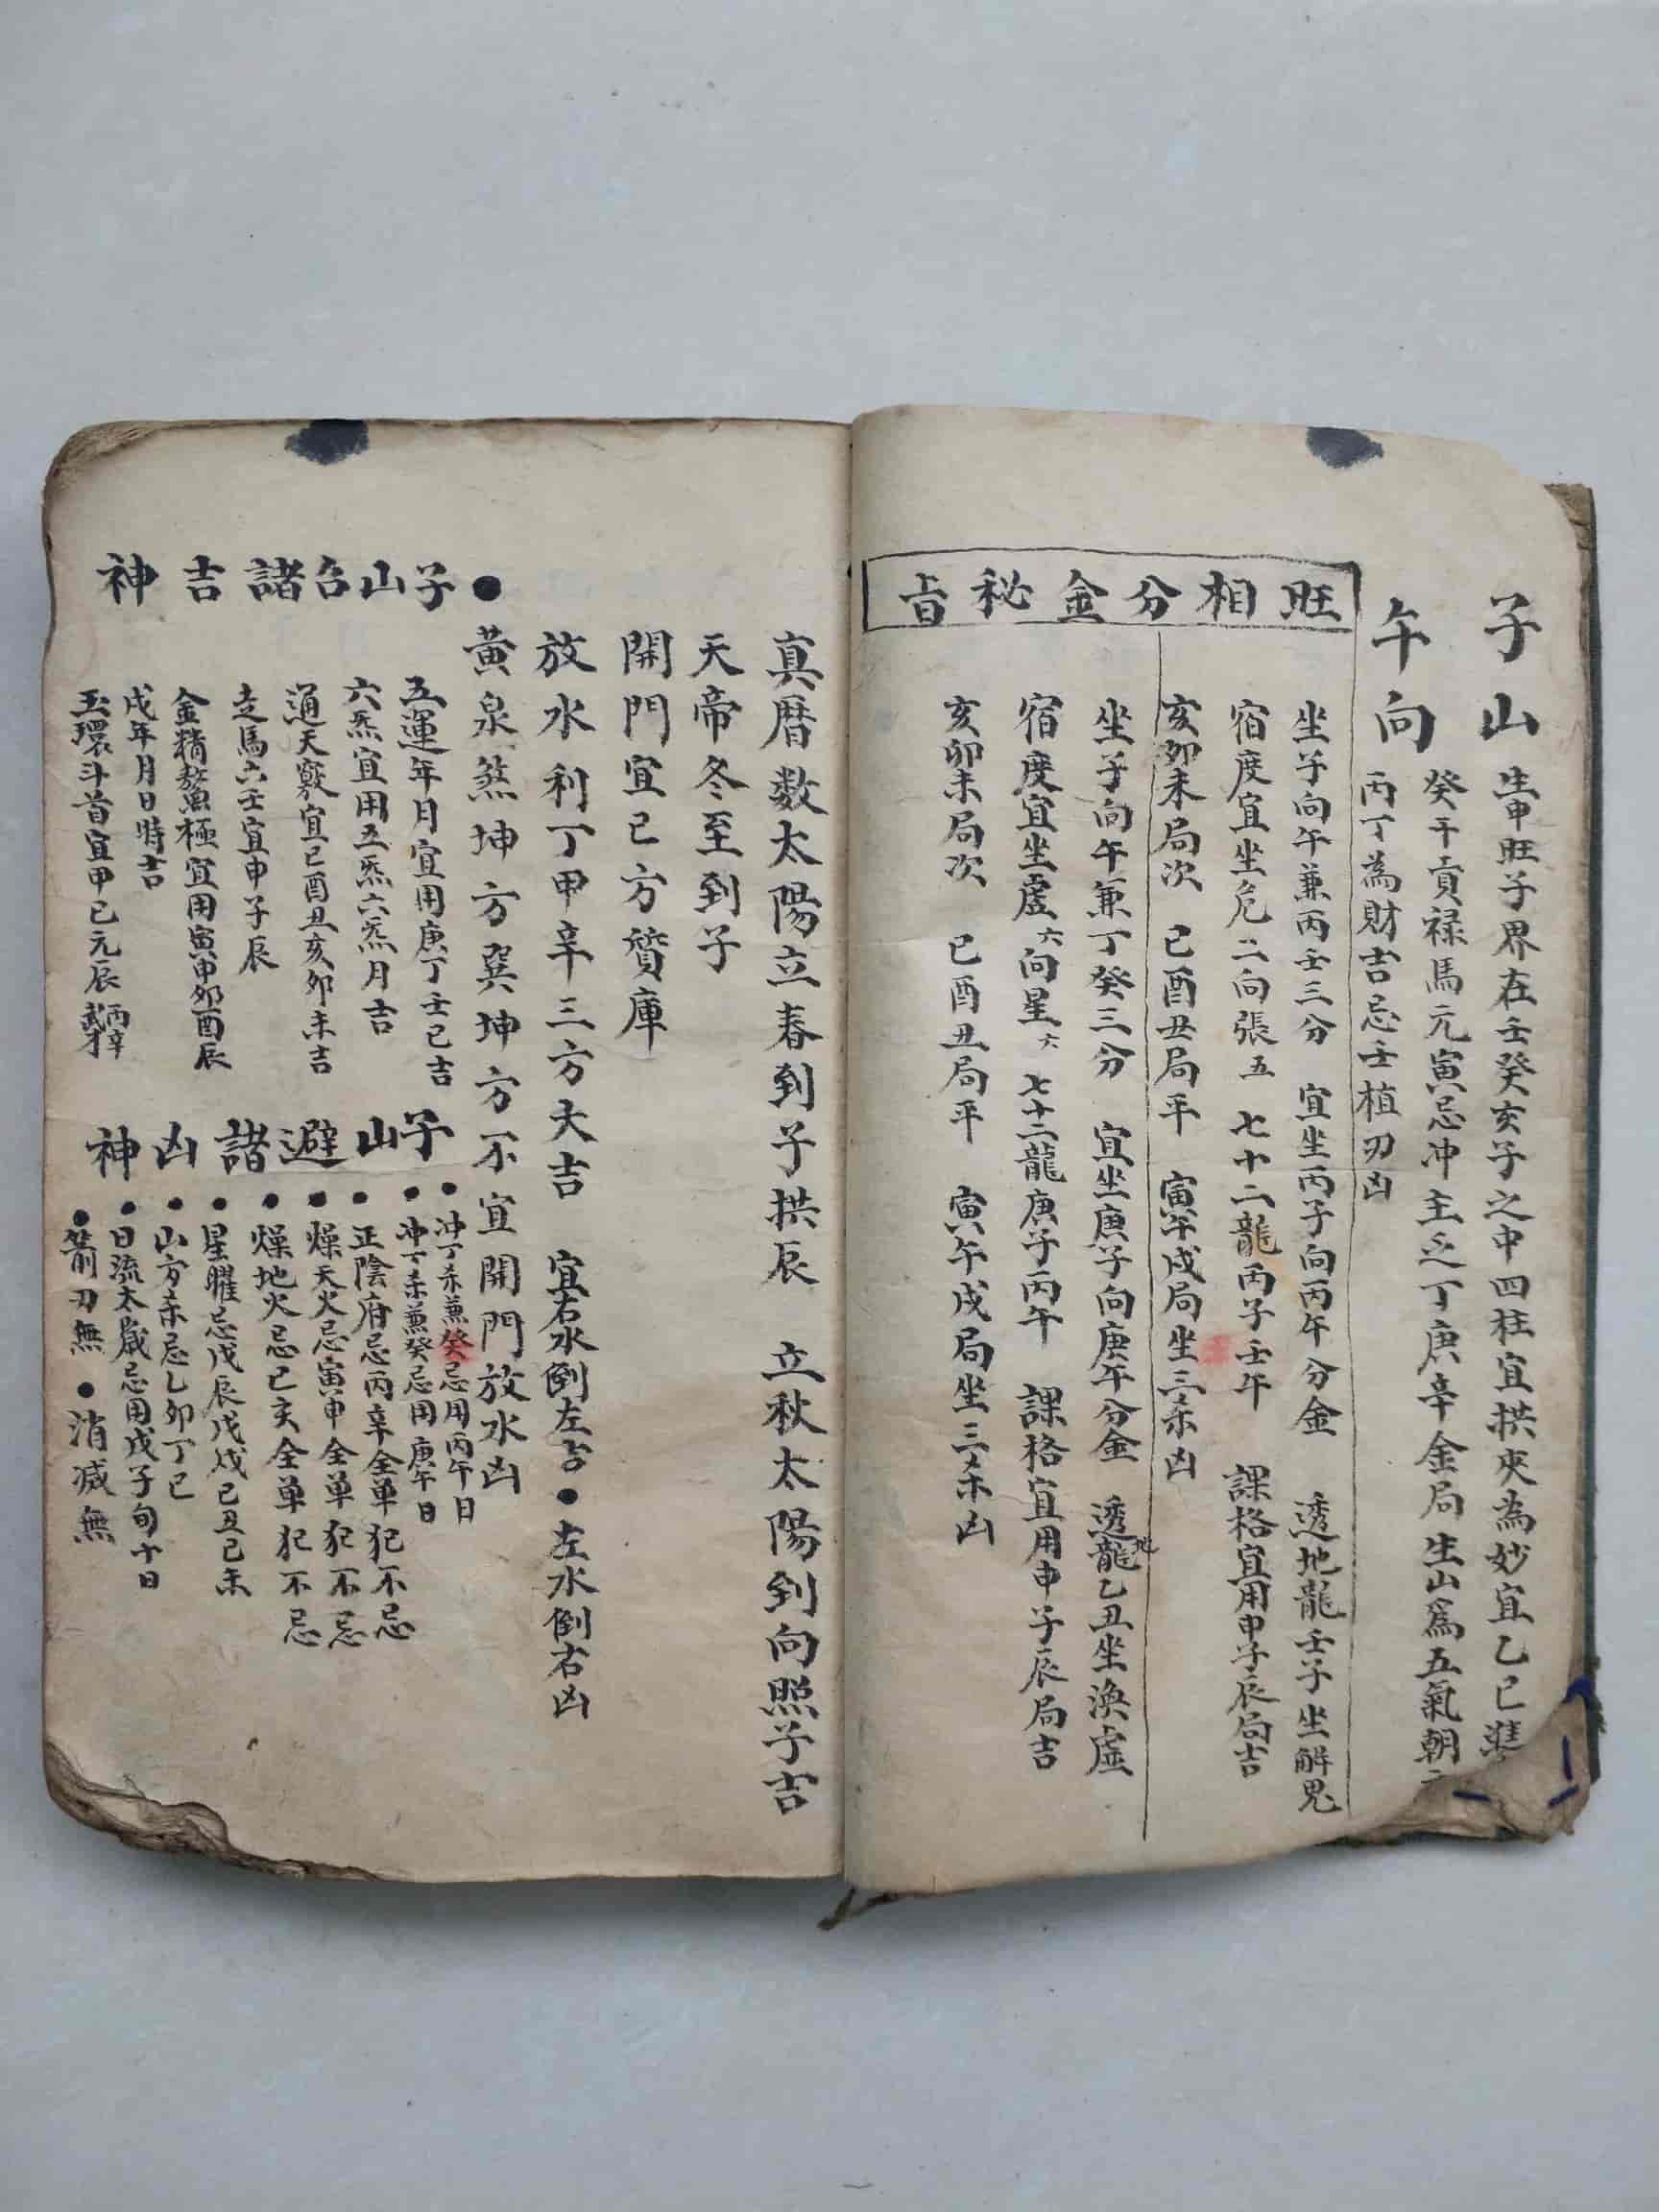 子山
午向
生申旺子界在壬癸亥子之中四柱宜拱夾為妙宜乙巳
癸干貢祿馬元寅忌冲主乏丁庚辛金局生山為五氣朝
丙丁為財吉忌壬植刃凶
旺相分金秘旨
坐子向午兼丙壬三分 宜坐丙子向丙午分金 透地龍壬子坐解鬼
宿度宜坐危二向張五 七十二龍丙子壬午 課格宜用申子辰局吉
亥卯未局次 巳酉丑局平 寅午戌局坐三杀凶
坐子向午兼丁癸三分 宜坐庚子向庚午分金 透地龍乙丑坐渙虛
宿度宜坐虛六向星六 七十二龍庚子丙午 課格宜用申子辰局吉
亥卯未局次 巳酉丑局平 寅午戌局坐三杀凶
真暦数太陽立春到子拱辰 立秋太陽到向照子吉
天帝冬至到子
開門宜巳方質庫
放水利丁甲辛三方大吉 宜右水倒左吉●左水倒右凶
黃泉煞坤方巽坤方不宜開門放水凶
●子山合諸吉神
五運年月宜用庚丁壬巳吉
六炁宜用五炁六炁月吉
通天竅宜巳酉丑亥卯未吉
走馬六壬宜申子辰
金精鰲極宜用寅申卯酉辰
戌年月日時吉
玉環斗首宜甲己元辰丙辛
子山避諸凶神
●冲丁杀兼癸忌用丙午日
●冲丁杀兼癸忌用庚午日
●正陰府忌丙辛全單犯不忌
●燥天火忌寅申全單犯不忌
●燥地火忌巳亥全單犯不忌
●星曜忌戊辰戊戌己丑己未
●山方杀忌乙卯丁巳
●日流太歲忌用戊子旬十日
●箭刃無●消滅無